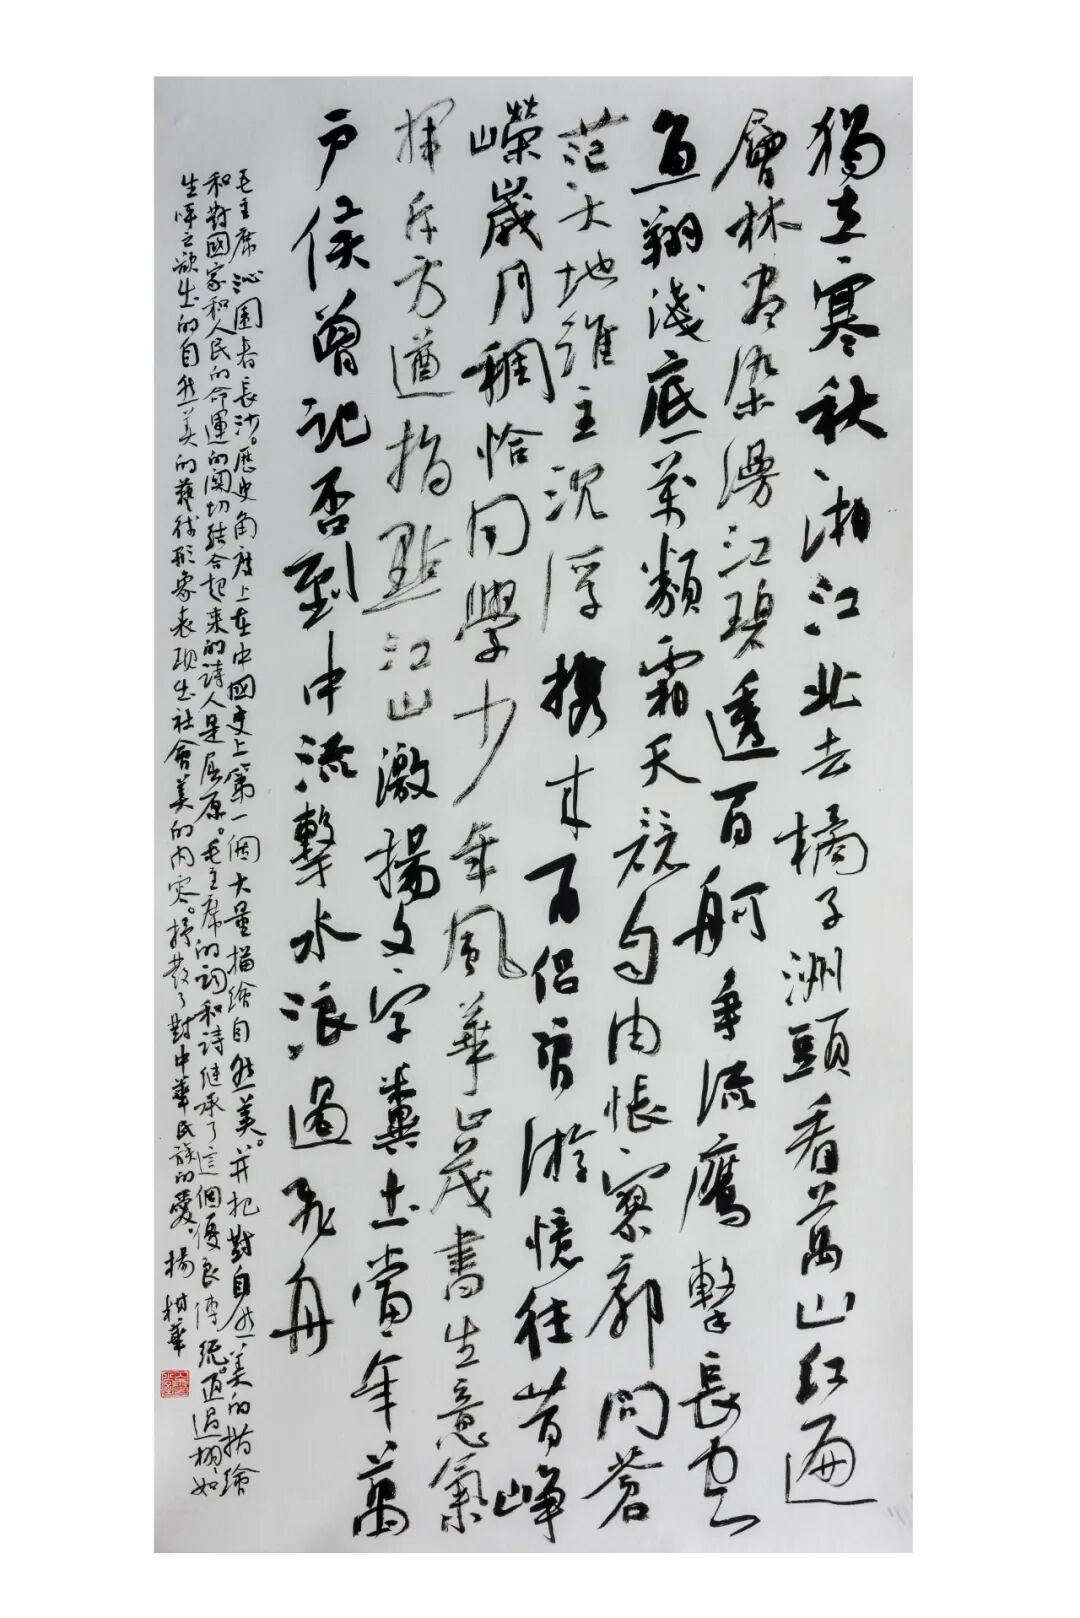 獨立寒秋湘江北去橘子洲頭看萬山红遍
層林盡染漫江碧透百舸爭流鷹擊長空
魚翔淺底萬類霜天競自由悵寥廓問蒼
茫大地誰主沉浮携來百侣曾游憶往昔崢
嶸歲月稠恰同學少年風華正茂書生意氣
揮斥方遒指點江山激揚文字糞土當年萬
户侯曾記否到中流擊水浪遏飛舟
毛主席沁園春長沙。歷史角度上在中國史上第一個大量描繪自然美。并把對自然美的描繪
和對國家和人民的命運的関切結合起来的詩人是屈原。毛主席的詞和詩继承了這個優良傳統。通過栩如
生呼之欲出的自然美的藝術形象表現出社會美的内容。抒發了對中華民族的愛、楊樹華